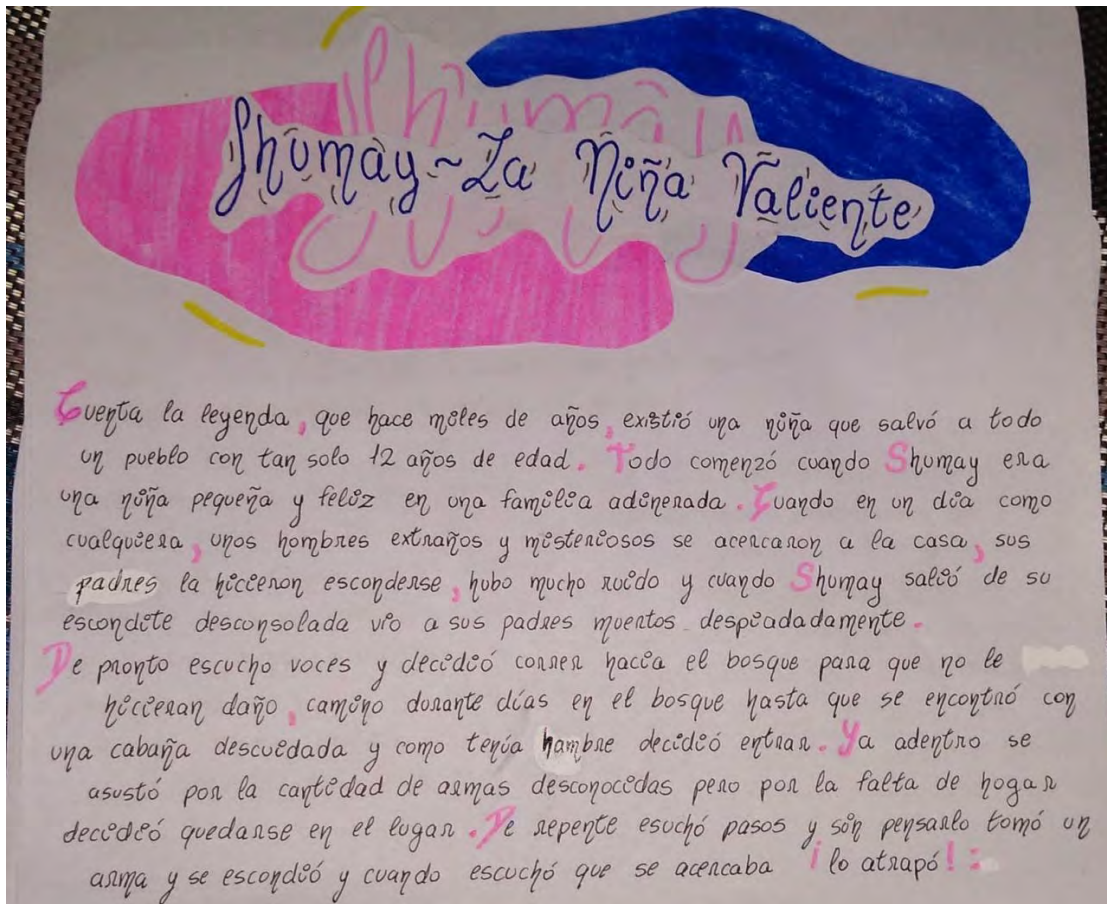 Shumay
Shumay ~ La Niña Valiente
Cuenta la leyenda, que hace miles de años, existió una niña que salvó a todo
un pueblo con tan solo 12 años de edad. Todo comenzó cuando Shumay era
una niña pequeña y feliz en una familia adinerada. Cuando en un día como
cualquiera, unos hombres extraños y misteriosos se acercaron a la casa, sus
padres la hicieron esconderse, hubo mucho ruido y cuando Shumay salió de su
escondite desconsolada vio a sus padres muertos despiadadamente.
De pronto escucho voces y decidió correr hacia el bosque para que no le
hicieran daño, camino durante días en el bosque hasta que se encontró con
una cabaña descuidada y como tenía hambre decidió entrar. Ya adentro se
asustó por la cantidad de armas desconocidas pero por la falta de hogar
decidió quedarse en el lugar. De repente esuchó pasos y sin pensarlo tomó un
arma y se escondió y cuando escuchó que se acercaba ¡lo atrapó! :